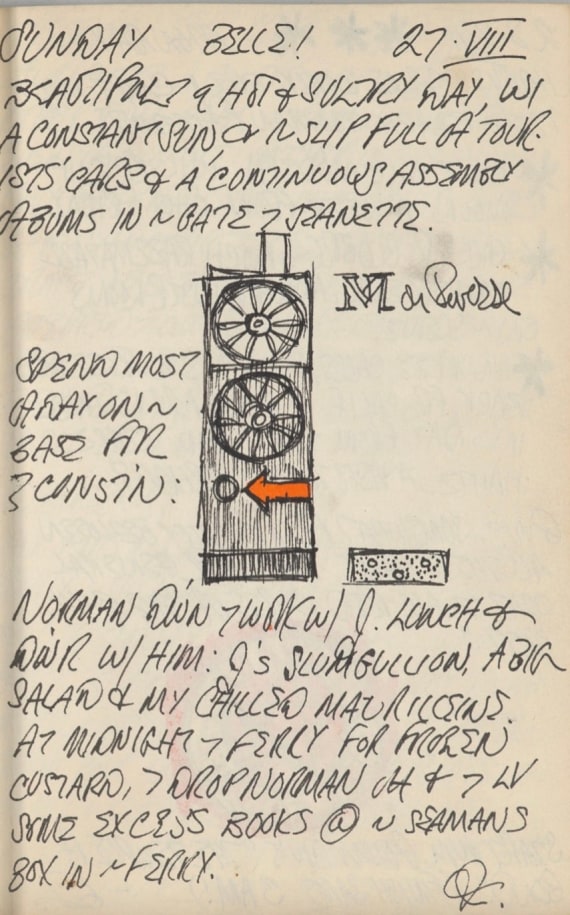 SUNDAY BELLE! 27·VIII
BEAUTIFUL & HOT & SULTRY DAY, W/
A CONSTANT SUN, & ~ SLIP FULL OF TOUR-
ISTS' CARS & A CONTINUOUS ASSEMBLY
ALBUMS IN ~ GATE > JEANETTE.
M on Reverse
SPEND MOST
OF DAY ON ~
BASE FOR
CONST'N:
NORMAN DWN > WORK W/ J. LUNCH &
DIN'R W/ HIM: J's SLUMGULLION, A BIG
SALAD & MY CHILLED
AT MIDNIGHT > FERRY FOR FROZEN
CUSTARD, > DROP NORMAN OFF & > LV
SOME EXCESS BOOKS @ ~ SEAMANS
BOX IN ~ FERRY.